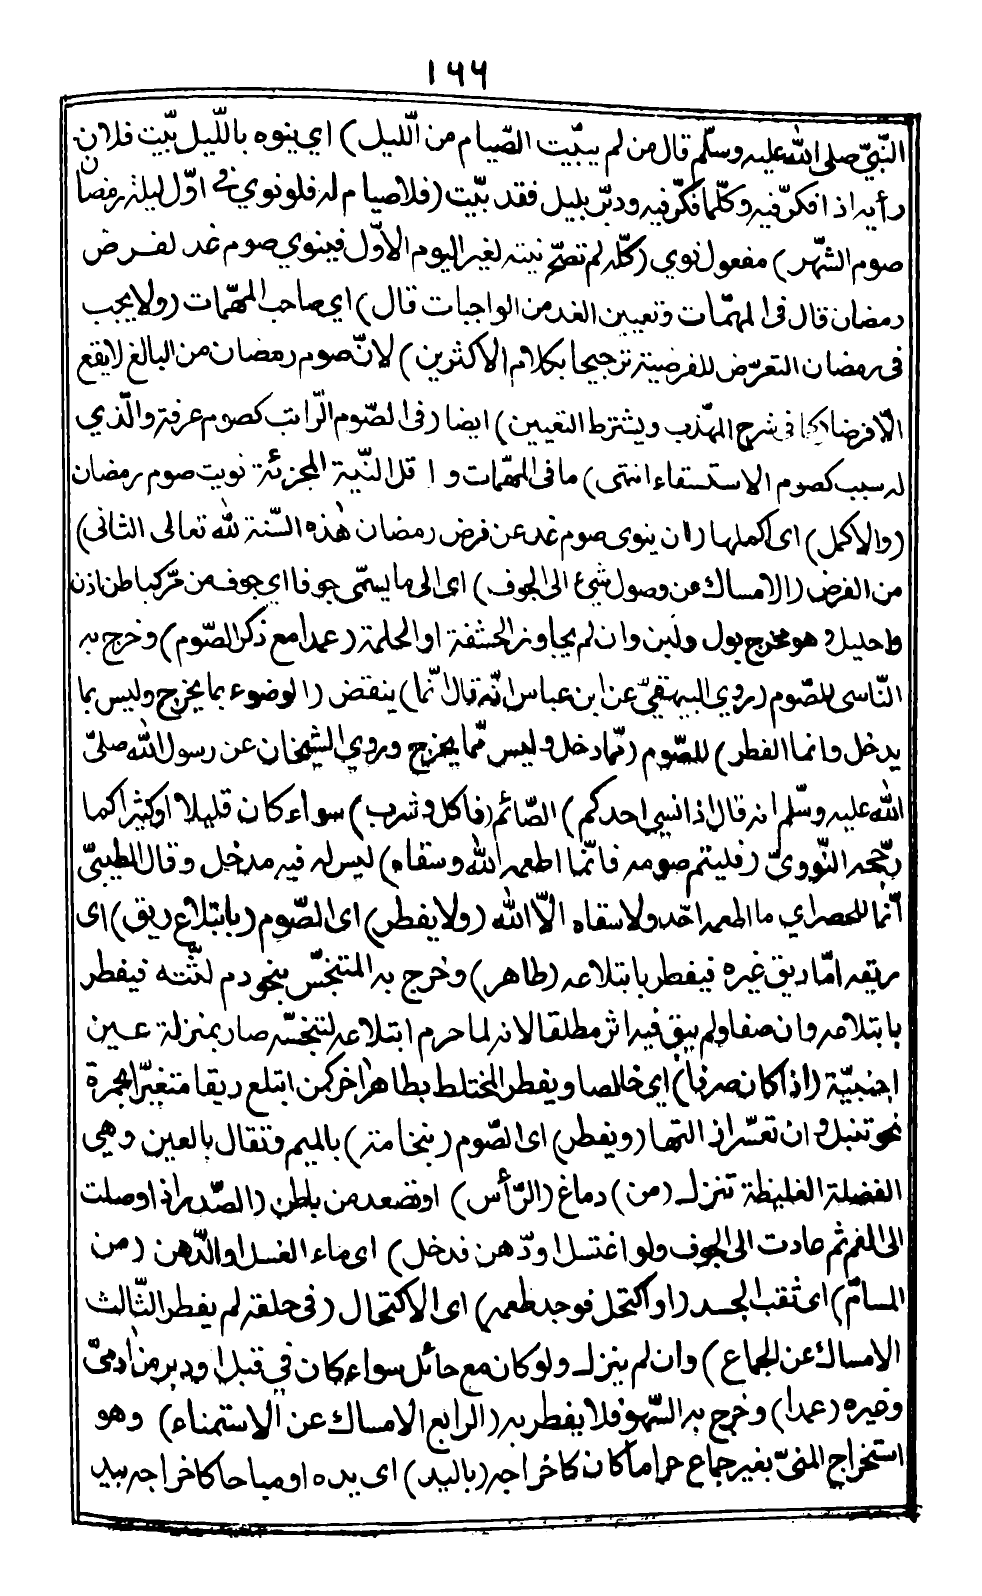 ١٦٦
النّبيّ صلى الله عليه وسلّم قال من لم يبيّت الصّيام من اللّيل) اي ينوه باللّيل بيّت فلان
رأيه اذا فكّر فيه وكلّما فكّر فيه ودبّر بليل فقد بيّت (فلا صيام له فلو نوي في اوّل ليلة رمضان
صوم الشّهر) مفعول نوي (كلّه لم تصحّ نيته لغير اليوم الاوّل فينوي صوم غد لفرض
رمضان قال فى المهمّات وتعيين الغد من الواجبات قال) اي صاحب المهمّات (ولا يجب
فى رمضان التعرّض للفرضية ترجيحا بكلام الاكثرين) لانّ صوم رمضان من البالغ لا يقع
الّا فرضا كما في شرح المهّذب ويشترط التعيين) ايضا (فى الصّوم الرّاتب كصوم عرفة والّذي
له سبب كصوم الاستسقاء انتهى) ما فى المهمّات واقل النّية المجزئة نويت صوم رمضان
(والاكمل) اى اكملها (ان ينوى صوم غد عن فرض رمضان هٰذه السّنة لله تعالى الثانى)
من الفرض (الامساك عن وصول شيئ الى الجوف) اى الى ما يسمّى جوفا اي جوف من مرّ كباطن اذن
واحليل وهو مخرج بول ولبن وان لم يجاوز الحشفة او الحلمة (عمدا مع ذكر الصّوم) وخرج به
النّاسى للصّوم (روي البيهقيّ عن ابن عباس انّه قال انّما) ينقض (الوضوء بما يخرج وليس بما
يدخل وانما الفطر) للصّوم (ممّا دخل وليس ممّا يخرج وروي الشيخان عن رسول الله صلىّ
الله عليه وسلّم انه قال اذا نسي احدكم) الصّائم (فاكل وشرب) سواء كان قليلا او كثيرا كما
رجّحه النّوويّ (فليتم صومه فانّما اطعمه الله وسقاه) ليس له فيه مدخل وقال الطيبىّ
انّما للحصر اي ما اطعمه احد ولا سقاه الّا الله (ولا يفطر) اى الصّوم (بابتلاع ريق) اى
ريقه امّا ريق غيره فيفطر بابتلاعه (طاهر) وخرج به المتنجّس بنحو دم لثّته فيفطر
بابتلاعه وان صفا ولم يبق فيه اثر مطلقا لانه لما حرم ابتلاعه لتنجّسه صار بمنزلة عين
اجنبيّة (اذا كان صرفا) اي خالصا ويفطر المختلط بطاهر اٰخر كمن ابتلع ريقا متغيّرا بحمرة
نحو تنبل وان تعسّر ازالتها (ويفطر) اى الصّوم (بنخامة) بالميم وتقال بالعين وهي
الفضلة الغليظة تنزل (من) دماغ (الرّأس) او تصعد من باطن (الصّدر اذا وصلت
الى الفم ثم عادت الى الجوف ولو اغتسل او دّهن فدخل) اى ماء الغسل او الدّهن (من
المسامّ) اى ثقب الجسد (او اكتحل فوجد طعمه) اى الاكتحال (فى حلقه لم يفطر الثّالث
الامساك عن الجماع) وان لم ينزل ولو كان مع حائل سواء كان في قبل او دبر من اٰدمىّ
وغيره (عمدا) وخرج به السّهو فلا يفطر به (الرابع الامساك عن الاستمناء) وهو
استخراج المنىّ بغير جماع حراما كان كاخراجه (باليد) اى يده او مباحا كاخراجه بيد